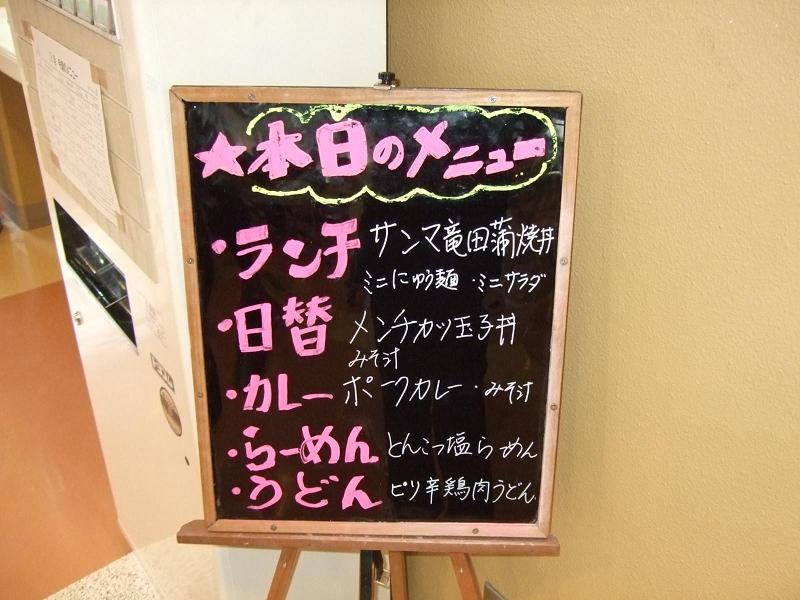 ★本日のメニュー
・ランチ サンマ竜田蒲焼丼
ミニにゅう麺・ミニサラダ
・日替 メンチカツ玉子丼
みそ汁
・カレー ポークカレー・みそ汁
・らーめん とんこつ塩らーめん
・うどん ピリ辛鶏肉うどん